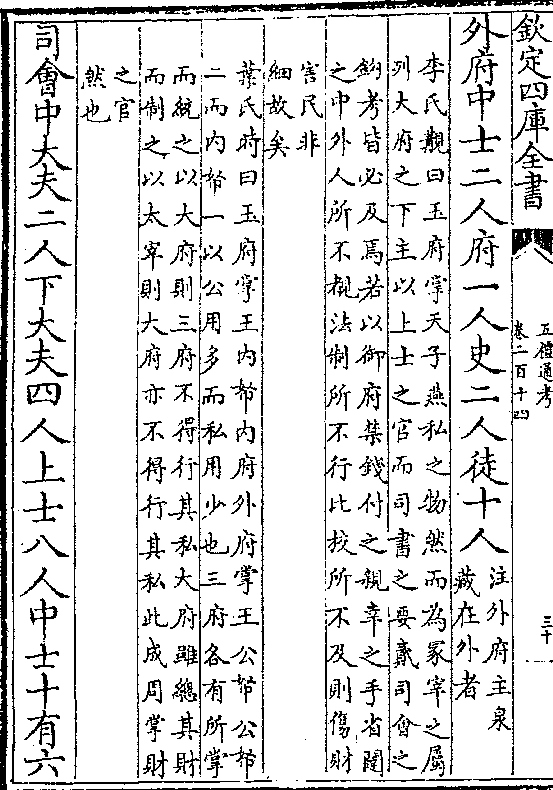 欽定四庫全書
五禮通考
卷二百十四
三十
外府中士二人府一人史二人徒十人
注外府主泉
藏在外者
李氏覯曰玉府掌天子燕私之物然而為冢宰之屬
列大府之下主以上士之官而司書之要貳司㑹之
鉤考皆必及焉若以御府禁錢付之親幸之手省闥
之中外人所不覩法制所不行比校所不及則傷財
害民非
細故矣
葉氏時曰玉府掌王內帑內府外府掌王公帑公帑
二而內帑一以公用多而私用少也三府各有所掌
而統之以大府則三府不得行其私大府雖總其財
而制之以太宰則大府亦不得行其私此成周掌財
之官
然也
司㑹中大夫二人下大夫四人上士八人中士十有六